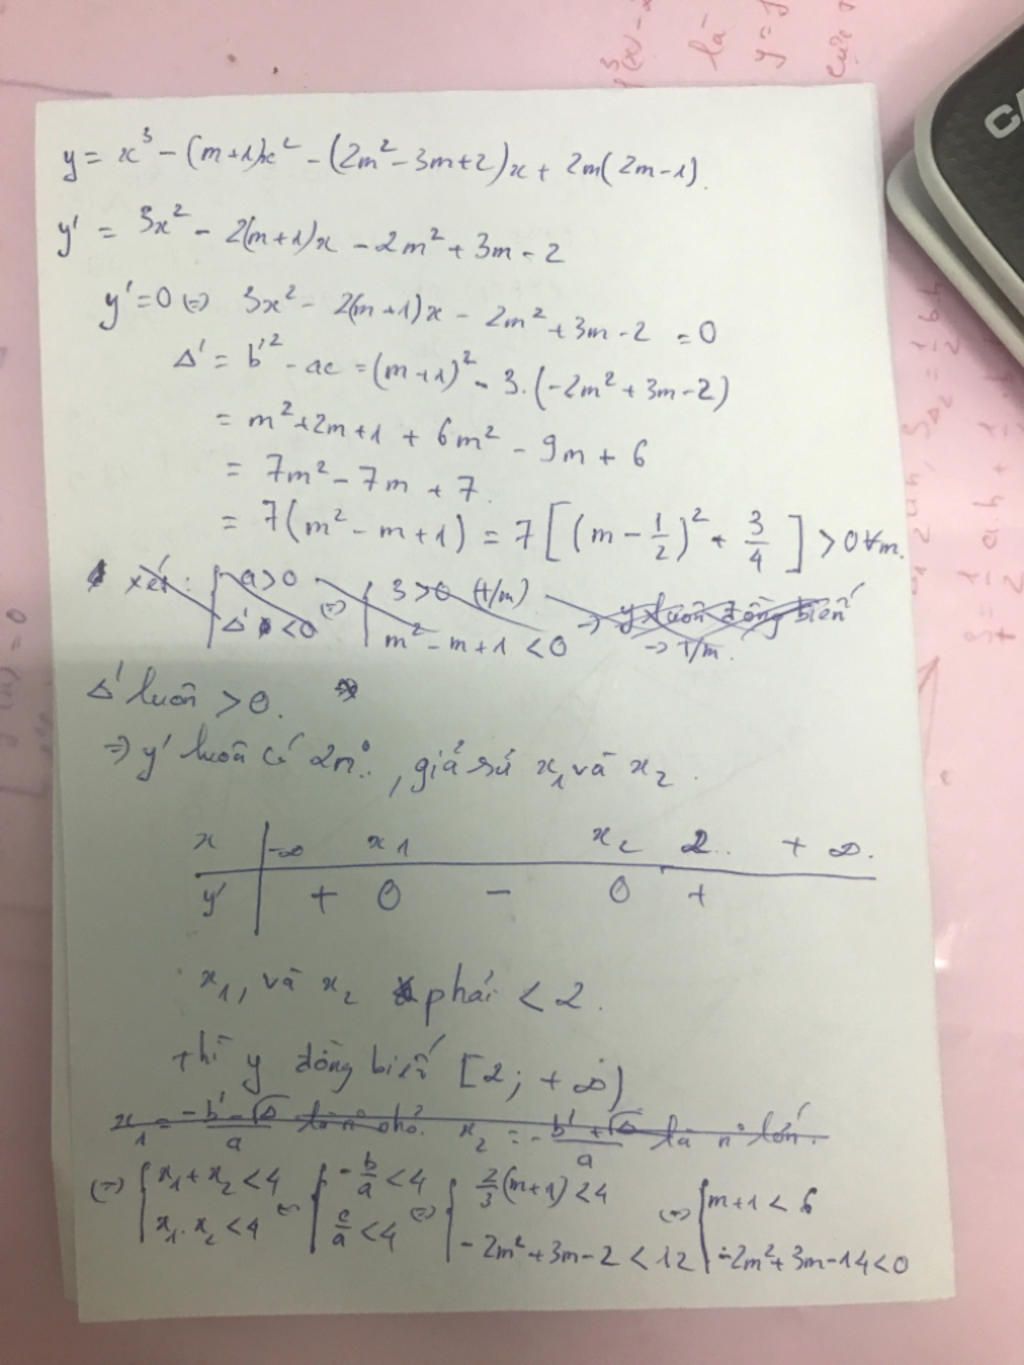 y = x³ - (m+1)x² - (2m² - 3m+2)x + 2m(2m-1).
y' = 3x² - 2(m+1)x - 2m² + 3m - 2
y' = 0 (=) 3x² - 2(m+1)x - 2m² + 3m - 2 = 0
Δ' = b'² - ac = (m+1)² - 3.(-2m² + 3m - 2)
= m² + 2m + 1 + 6m² - 9m + 6
= 7m² - 7m + 7.
= 7(m² - m + 1) = 7[(m - 1/2)² + 3/4] > 0 ∀m.
xét: { a > 0 (=) { 3 > 0 (t/m) => y luôn đồng biến
Δ' < 0 m² - m + 1 < 0 -> t/m.
Δ' luôn > 0.
=> y' luôn có 2n⁰, giả sử x₁ và x₂.
x -∞ x₁ x₂ 2 +∞.
y' + 0 - 0 +
x₁, và x₂ phải < 2.
thì y đồng biến [2; +∞)
x₁ = (-b' - √Δ)/a là n⁰ nhỏ. x₂ = (-b' + √Δ)/a là n⁰ lớn.
(=) { x₁ + x₂ < 4 (=) { -b/a < 4 (=) { 2/3(m+1) < 4 (=) { m+1 < 6
x₁.x₂ < 4 c/a < 4 -2m² + 3m - 2 < 12 -2m² + 3m - 14 < 0